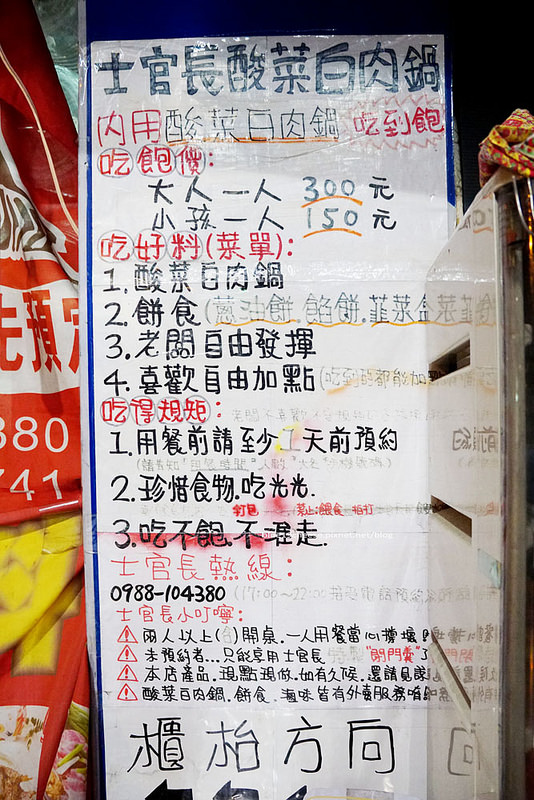 士官長酸菜白肉鍋
內用酸菜白肉鍋 吃到飽
吃飽價:
大人一人 300 元
小孩一人 150 元
吃好料(菜單):
1.酸菜白肉鍋
2.餅食(蔥油餅.餡餅.韭菜盒
3.老闆自由發揮
4.喜歡自由加點(吃到 都能加
吃得規矩:
1.用餐前請至少 天前預約
2.珍惜食物.吃光光.
打包 禁止:餵食 拍打
3.吃不飽.不准走.
士官長熱線:
0988-104380 (17:00~22:00接受電話預約
士官長小叮嚀:
兩人以上(含)開桌.一人用餐當心撐壞
未預約者...只能享用士官長 特製"閉門羹"
本店產品.現點現做.如有久候.還請見諒
酸菜白肉鍋.餅食. 皆有外賣服務
櫃枱方向
先預
380
741